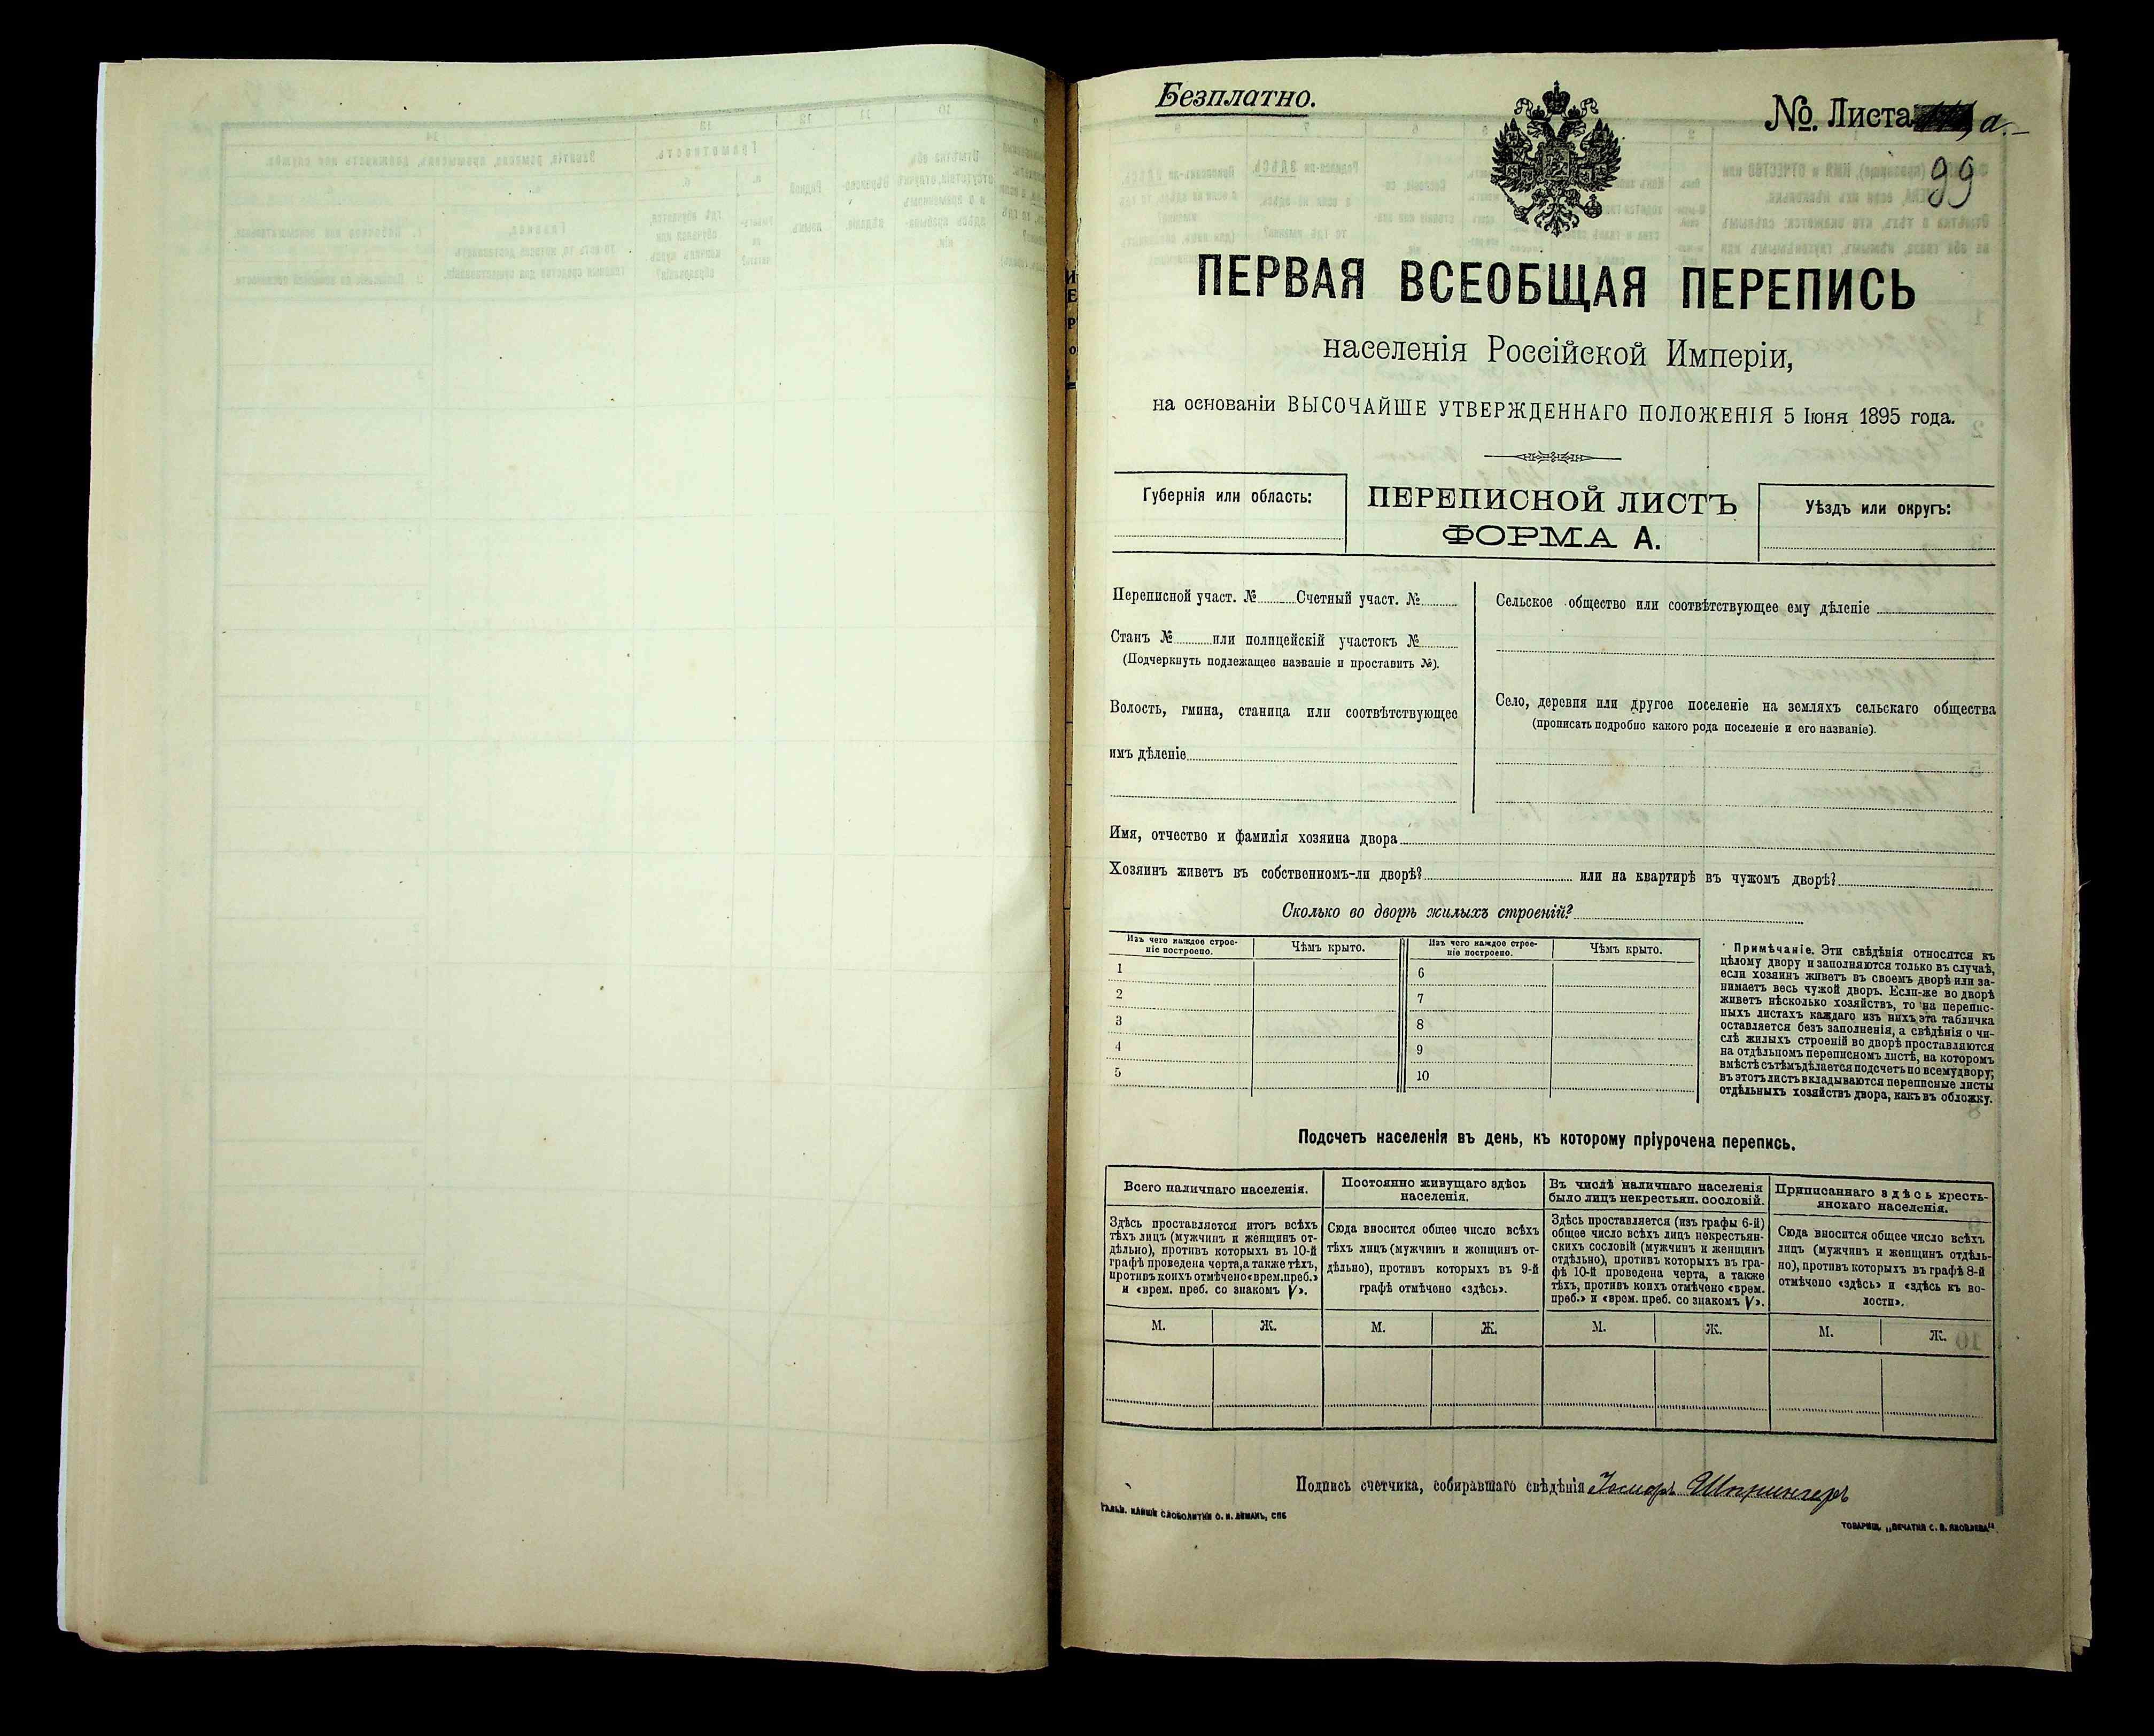 Безплатно.
№ Листа а.
99
ПЕРВАЯ ВСЕОБЩАЯ ПЕРЕПИСЬ
населенія Россійской Имперіи,
на основаніи ВЫСОЧАЙШЕ УТВЕРЖДЕННАГО ПОЛОЖЕНІЯ 5 Іюня 1895 года.
Губернія или область:
ПЕРЕПИСНОЙ ЛИСТЪ
ФОРМА А.
Уѣздъ или округъ:
Переписной участ. № Счетный участ. №
Станъ № или полицейскій участокъ №
(Подчеркнуть подлежащее названіе и проставить №).
Волость, гмина, станица или соотвѣтствующее
имъ дѣленіе
Сельское общество или соотвѣтствующее ему дѣленіе
Село, деревня или другое поселеніе на земляхъ сельскаго общества
(прописать подробно какого рода поселеніе и его названіе).
Имя, отчество и фамилія хозяина двора
Хозяинъ живетъ въ собственномъ-ли дворѣ? или на квартирѣ въ чужомъ дворѣ?
Сколько во дворѣ жилыхъ строеній?
Изъ чего каждое строе-
ніе построено.
Чѣмъ крыто.
Изъ чего каждое строе-
ніе построено.
Чѣмъ крыто.
1
2
3
4
5
6
7
8
9
10
Примѣчаніе. Эти свѣдѣнія относятся къ
цѣлому двору и заполняются только въ случаѣ,
если хозяинъ живетъ въ своемъ дворѣ или за-
нимаетъ весь чужой дворъ. Если-же во дворѣ
живетъ нѣсколько хозяйствъ, то на перепис-
ныхъ листахъ каждаго изъ нихъ эта табличка
оставляется безъ заполненія, а свѣдѣнія о чи-
слѣ жилыхъ строеній во дворѣ проставляются
на отдѣльномъ переписномъ листѣ, на которомъ
вмѣстѣ съ тѣмъ дѣлается подсчетъ по всему двору;
въ этотъ листъ вкладываются переписные листы
отдѣльныхъ хозяйствъ двора, какъ въ обложку.
Подсчетъ населенія въ день, къ которому пріурочена перепись.
Всего наличнаго населенія.
Здѣсь проставляется итогъ всѣхъ
тѣхъ лицъ (мужчинъ и женщинъ от-
дѣльно), противъ которыхъ въ 10-й
графѣ проведена черта, а также тѣхъ,
противъ коихъ отмѣчено «врем. преб.»
и «врем. преб. со знакомъ V».
М. Ж.
Постоянно живущаго здѣсь
населенія.
Сюда вносится общее число всѣхъ
тѣхъ лицъ (мужчинъ и женщинъ от-
дѣльно), противъ которыхъ въ 9-й
графѣ отмѣчено «здѣсь».
М. Ж.
Въ числѣ наличнаго населенія
было лицъ некрестьян. сословій.
Здѣсь проставляется (изъ графы 6-й)
общее число всѣхъ лицъ некрестьян-
скихъ сословій (мужчинъ и женщинъ
отдѣльно), противъ которыхъ въ гра-
фѣ 10-й проведена черта, а также
тѣхъ, противъ коихъ отмѣчено «врем.
преб.» и «врем. преб. со знакомъ V».
М. Ж.
Приписаннаго здѣсь кресть-
янскаго населенія.
Сюда вносится общее число всѣхъ
лицъ (мужчинъ и женщинъ отдѣль-
но), противъ которыхъ въ графѣ 8-й
отмѣчено «здѣсь» и «здѣсь къ во-
лости».
М. Ж.
Подпись счетчика, собиравшаго свѣдѣнія Шпрингеръ
О. И. ЛЕМАНЪ, СПБ
ТОВАРИЩ. „ПЕЧАТНЯ С. П. ЯКОВЛЕВА“